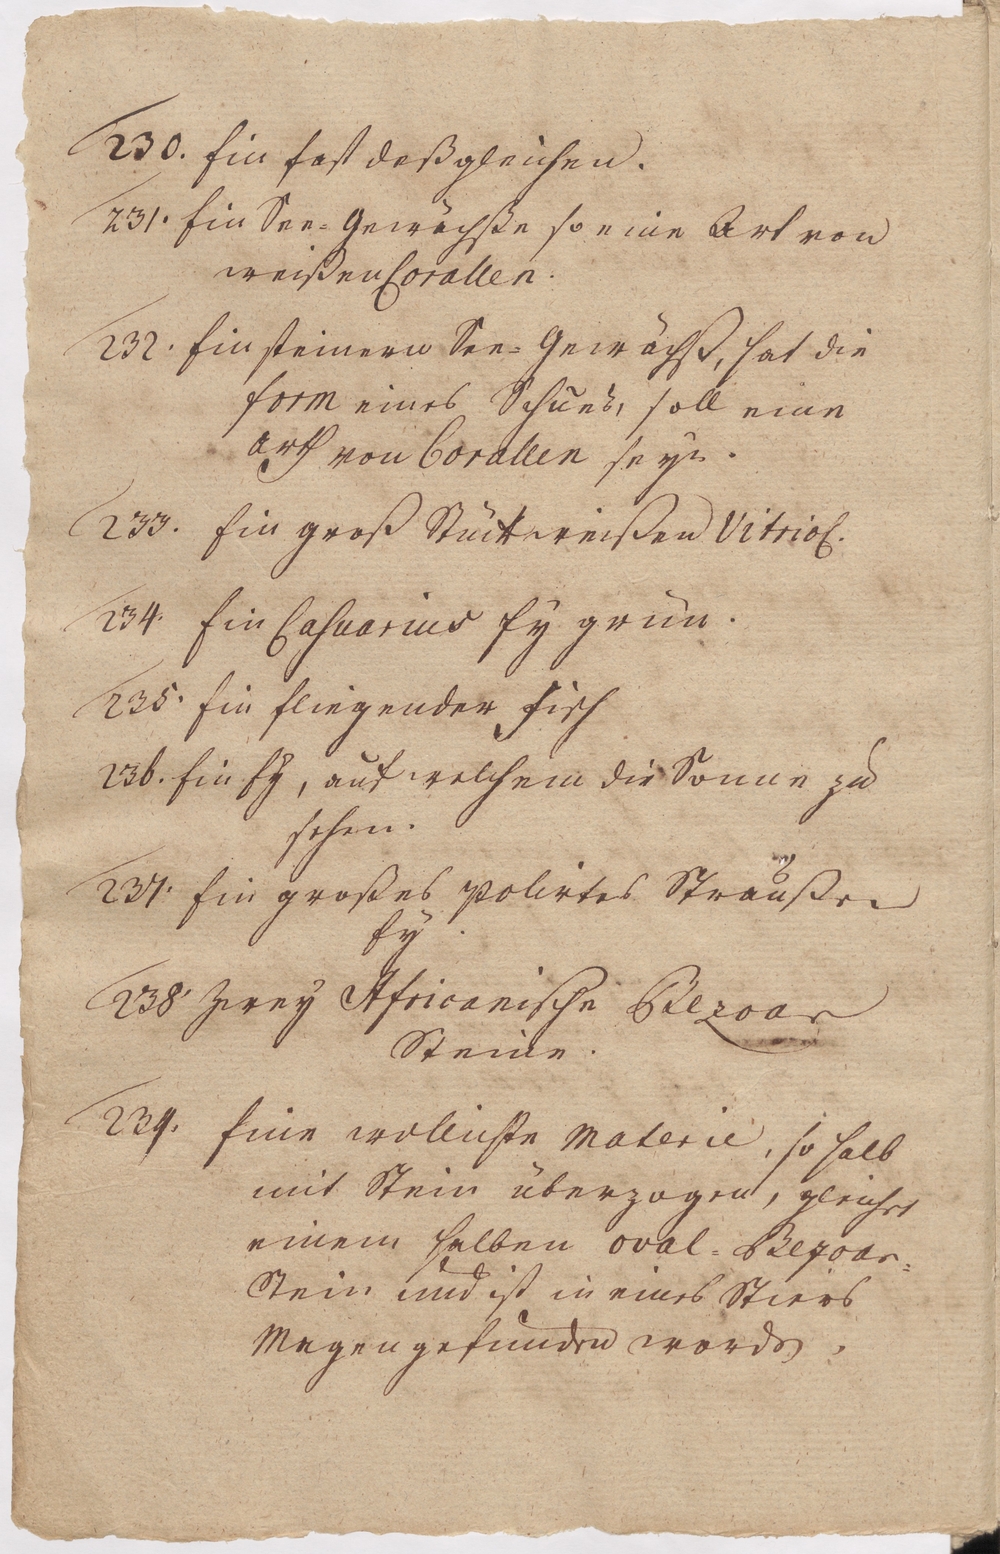 230. Ein fast deßgleichen.
231. Ein See-Gewächße so eine Art von
weißen Corallen.
232. Ein steinern See-Gewächß, hat die
form eines Schues, soll eine
Arth von Corallen seyn.
233. Ein groß Stück weißen Vitriol.
234. Ein Casuarius Ey grün.
235. Ein fliegender Fisch
236. Ein Ey, auf welchem die Sonne zu
sehen.
237. Ein großes polirtes Straußen
Ey.
238. Zwey Africanische Bezoar
Steine.
239. Eine wollichte Materie, so halb
mit Stein überzogen, gleichet
einem halben oval-Bezoar-
Stein und ist in eines Stiers
Magen gefunden worden.